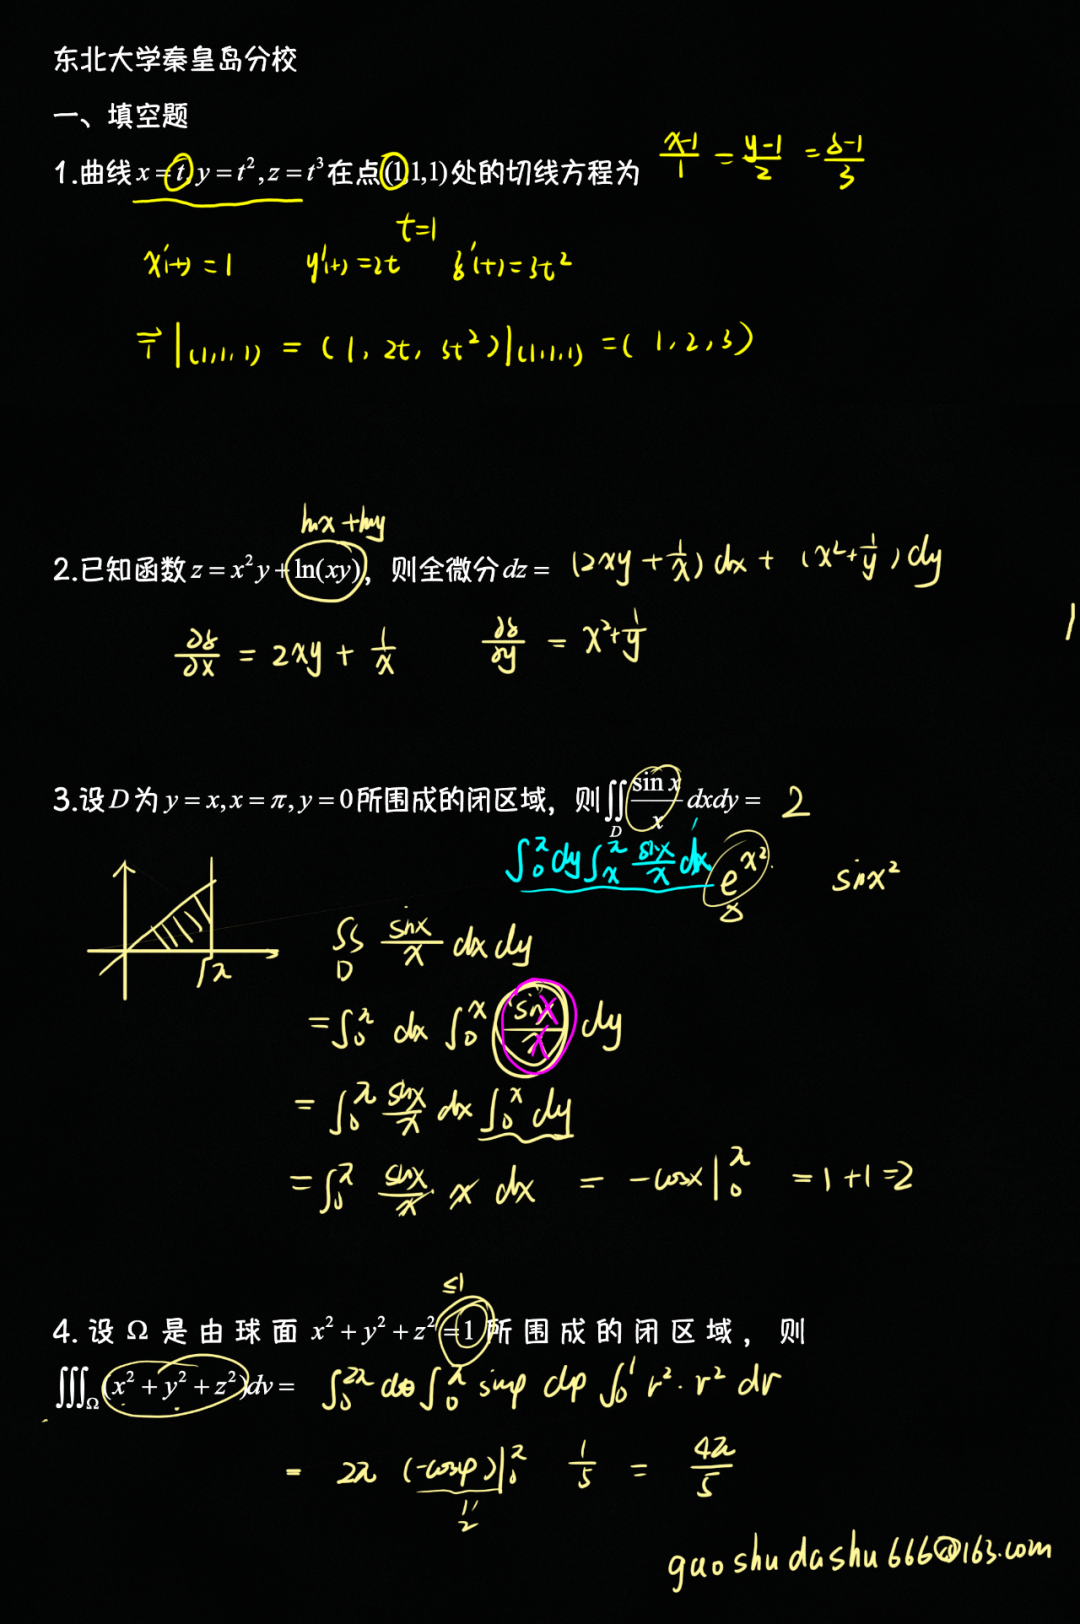 东北大学秦皇岛分校
一、填空题
1.曲线 x = t, y = t², z = t³ 在点(1,1,1)处的切线方程为 (x-1)/1 = (y-1)/2 = (z-1)/3
t=1
x'(t) = 1 y'(t) = 2t z'(t) = 3t²
T⃗|(1,1,1) = (1, 2t, 3t²)|(1,1,1) = (1, 2, 3)
lnx + lny
2.已知函数 z = x²y + ln(xy)，则全微分 dz = (2xy + 1/x) dx + (x² + 1/y) dy
∂z/∂x = 2xy + 1/x ∂z/∂y = x² + 1/y
1
3.设 D 为 y = x, x = π, y = 0 所围成的闭区域，则∬_D (sin x)/x dxdy = 2
∫₀^π dy ∫_x^π (sinx)/x dx e^(x²) sinx²
x
π
∬_D (sinx)/x dx dy
= ∫₀^π dx ∫₀^x (sinx)/x dy
= ∫₀^π (sinx)/x dx ∫₀^x dy
= ∫₀^π (sinx)/x · x dx = -cosx|₀^π = 1 + 1 = 2
≤1
4. 设 Ω 是由球面 x² + y² + z² = 1 所围成的闭区域，则
∭_Ω (x² + y² + z²)dv = ∫₀^2π dθ ∫₀^π sinφ dφ ∫₀^1 r² · r² dr
= 2π (-cosφ)|₀^π 1/5 = 4π/5
"
2
guoshudashu666@163.com